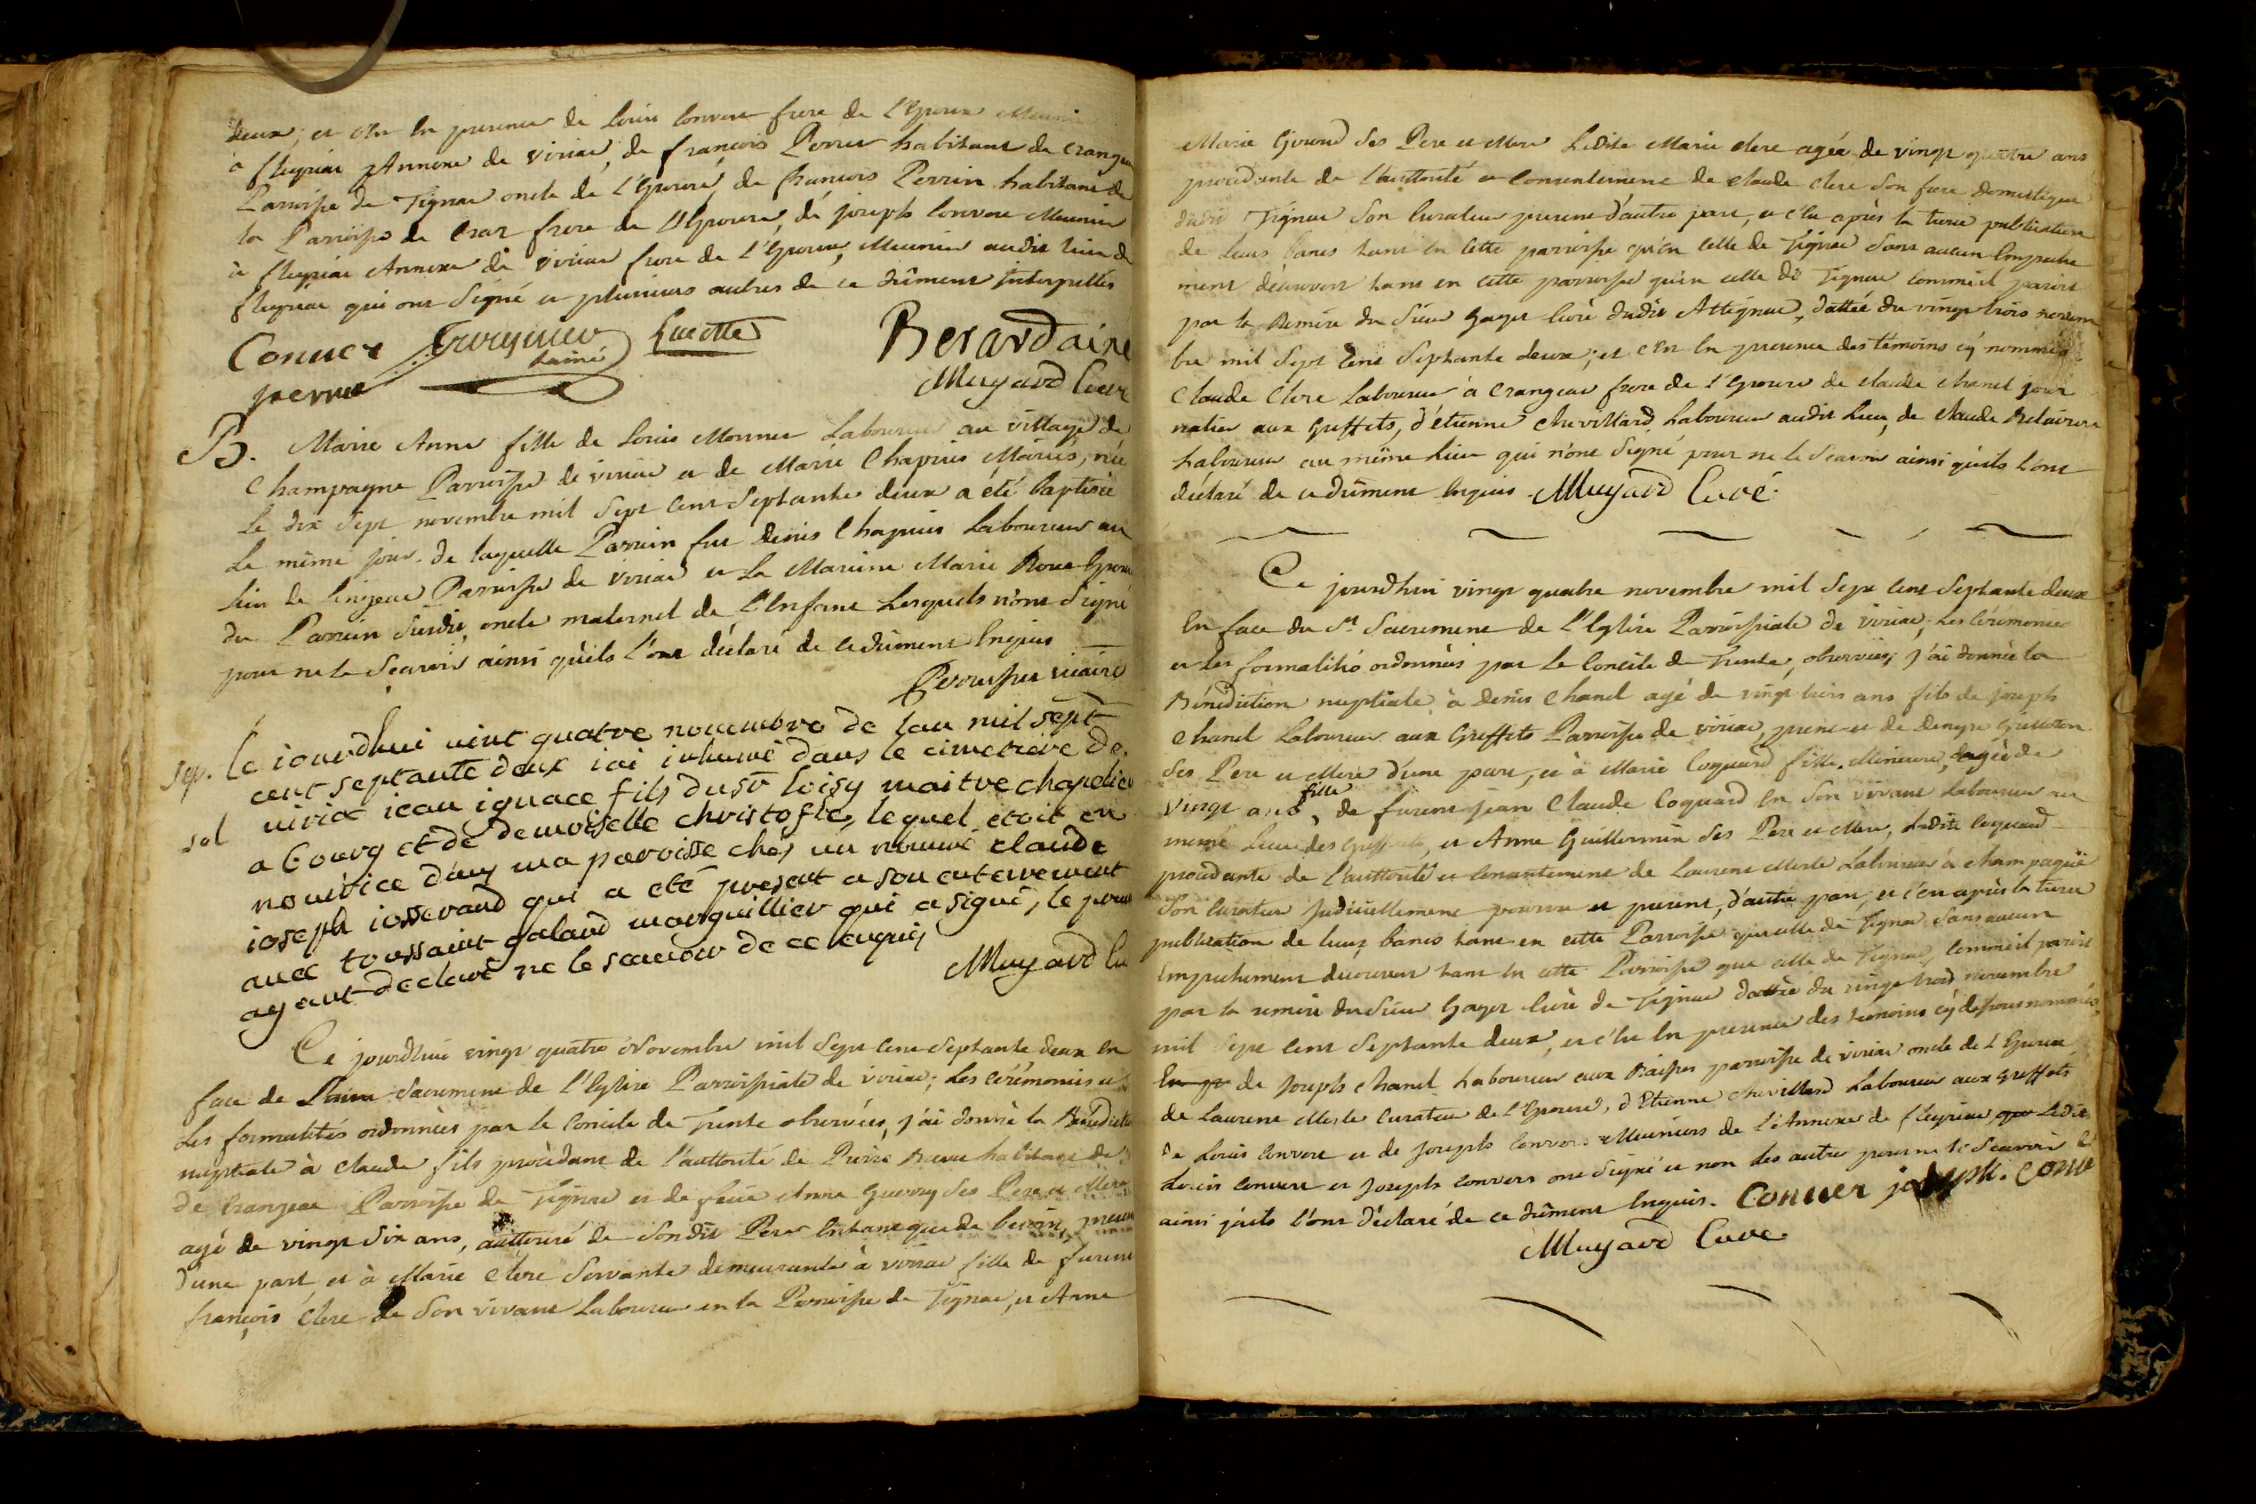 deux; et c'en la presence de Louis Convert frere de l'Epoux Meunier
à fleyriat Annexe de viriat, de françois Perret habitant de Crangeat
Parroisse de Tignat oncle de l'Epouse, de francois Perrin habitant de
la Parroisse de Cras frere de l'Epouse, de joseph Convert Meunier
à fleyriat Annexe de viriat frere de l'Epoux, Meunier audit lieu de
fleyriat qui ont Signé et plusieurs autres de ce dûment interpellés
Conuer
perret lainé Berardaine
Muyard Curé
B. Marie Anne fille de Louis Monnet Laboureur au village de
Champagne Parroisse de viriat et de Marie Chapuis Mariés, née
Le dix Sept novembre mil Sept Cent Septante deux a été baptisée
Le même jour. de laquelle Parrain fut denis Chapuis Laboureur au
lieu de Parroisse de viriat et La Marrine Marie Epouse
du Parrain Susdit, oncle maternel de l'Enfant Lesquels n'ont Signé
pour ne le Scavoir ainsi qu'ils l'ont déclaré de ce dûment Enquis
vicaire
Sep. Le iourdhui vint quatre nouembre de lan mil sept
cent septante deux iai inhumé dans le cimetiere de
sol viria iean ignace fils du sr loisy maitre chapelier
a bourg et de demoiselle christofle, lequel etoit en
nouritice dans ma paroisse chés un nommé claude
ioseph iosserand qui a eté present a son enterrement
avec toussaint galand marguillier qui a signé, le premier
ayant declaré ne le scauoir de ce enquis
Muyard Cu
Ce jourdhui vingt quatre Novembre mil Sept Cent Septante deux en
face de Saint Sacrement de l'Eglise Parroissiale de viriat; Les cérémonies et
Les formalités ordonnées par le Concile de Trente observées, j'ai donné la Bénédiction
nuptiale à Claude fils procèdant de l'authorité de Pierre habitant de
de Crangeat Parroisse de Tignat et de feüe Anne Guerry Ses Pere et Mere
agé de vingt Six ans, authorisé de Sondit Pere En tant que de besoin, present
d'une part, et à Marie Clerc Servante demeurante à viriat fille de furent
françois Clerc de Son vivant Laboureur en la Parroisse de Tignat, et Anne
Marie Girond Ses Pere et Mere Ladite Marie Clerc agée de vingt quatre ans
procédante de l'authorité et Consentement de Claude Clerc Son frere domestique
dudit Tignat Son Curateur present d'autre part, et c'en après la trine publication
de Leurs bancs tant en Cette parroisse qu'en Celle de Tignat Sans aucun Empeche
ment découvert tant en cette parroisse qu'en celle de Tignat Comm'il paroit
par la Remise du Sieur Gayet Curé dudit Attignat, dattée du vingt trois novem
bre mil Sept Cent Septante deux; et c'en la presence des témoins cy nommés
Claude Clerc Laboureur à Crangeat frere de l'Epouse de Claude Chanel jour
nalier aux Greffets, d'étienne Chevillard Laboureur audit Lieu, de Claude
Laboureur au même Lieu qui n'ont Signé pour ne le Scavoir ainsi qu'ils l'ont
déclaré de ce dûment Enquis. Muyard Curé.
Ce jourdhui vingt quatre novembre mil Sept Cent Septante deux
En face du St Sacrement de l'Eglise Parroissiale de viriat; Les Cérémonies
et Les formalités ordonnées par Le Concile de Trente, observées; j'ai donnée la
Bénédiction nuptiale à denis Chanel agé de vingt trois ans fils de joseph
Chanel Laboureur aux Greffets Parroisse de viriat, present et de denyse
Ses Pere et Mere d'une part, et à Marie Coquard fille Mineure, agée de
vingt ans, fille de furent jean Claude Coquard En Son vivant Laboureur au
meme Lieu des Greffets, et Anne Guillermin Ses Pere et Mere, Ladite Coquard
procédante de l'authorité et Consentement de Laurent Merle Laboureur à Champagne
Son Curateur judiciellement pourvu et present, d'autre part, et c'en après la trine
publication de Leurs bancs tant en cette Parroisse que celle de Tignat Sans aucun
Empechement decouvert tant en cette Parroisse que celle de Tignat, Comm'il paroit
par la remise du Sieur Gayet Curé de Tignat dattée du vingt trois novembre
mil Sept Cent Septante deux, et c'en En presence des temoins cy dessous nommés
de Joseph Chanel Laboureur aux parroisse de viriat oncle de l'Epoux
de Laurent Merle Curateur de l'Epouse, d'Etienne Chevillard Laboureur aux Greffets
de Louis Convert et de Joseph Convert Meuniers de l'Annexe de fleyriat Ledit
Louis Convert et Joseph Convert ont Signé et non Les autres pour ne le Scavoir
ainsi qu'ils l'ont déclaré de ce dûment Enquis. Conuer joseph. conve
Muyard Curé.